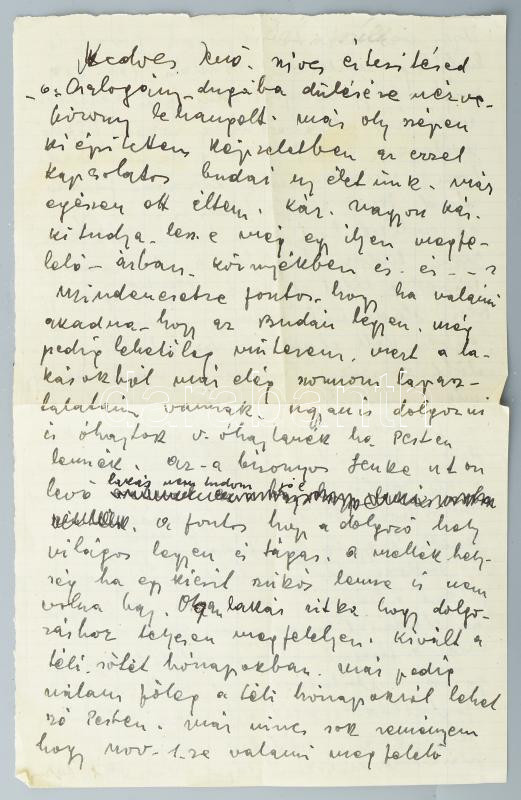 Kedves Jenő. szives értesitésed
a Csalogány-dugába dülésére nézve-
bizony lehangolt. már oly szépen
kiépitettem képzeletben az ezzel
kapcsolatos budai uj életünk. már
egészen ott éltem. Kár. nagyon kár.
Ki tudja. lesz-e még egy ilyen megfe-
lelő - árban. környékben és. és - - ?
Mindenesetre fontos. hogy ha valami
akadna - hogy az Budán legyen. még
pedig lehetőleg műterem. mert a la-
kásokból már elég szomorú tapasz-
talataim vannak. ugyanis dolgozni
is óhajtok v. óhajtanék ha Pesten
lennék. az - a bizonyos Lenke uton
levő lakás nem tudom
a fontos hogy a dolgozó hely
világos legyen és tágas. a mellék hely-
ség ha egy kicsit szükös lenne is nem
volna baj. Olyan lakás ritka. hogy dolgo-
záshoz teljesen megfeleljen. Kivált a
téli. sötét hónapokban. már pedig
nálam főleg a téli hónapokról lehet
szó Pesten. már nincs sok reményem
hogy nov. 1.-re valami megfelelő
darabanth